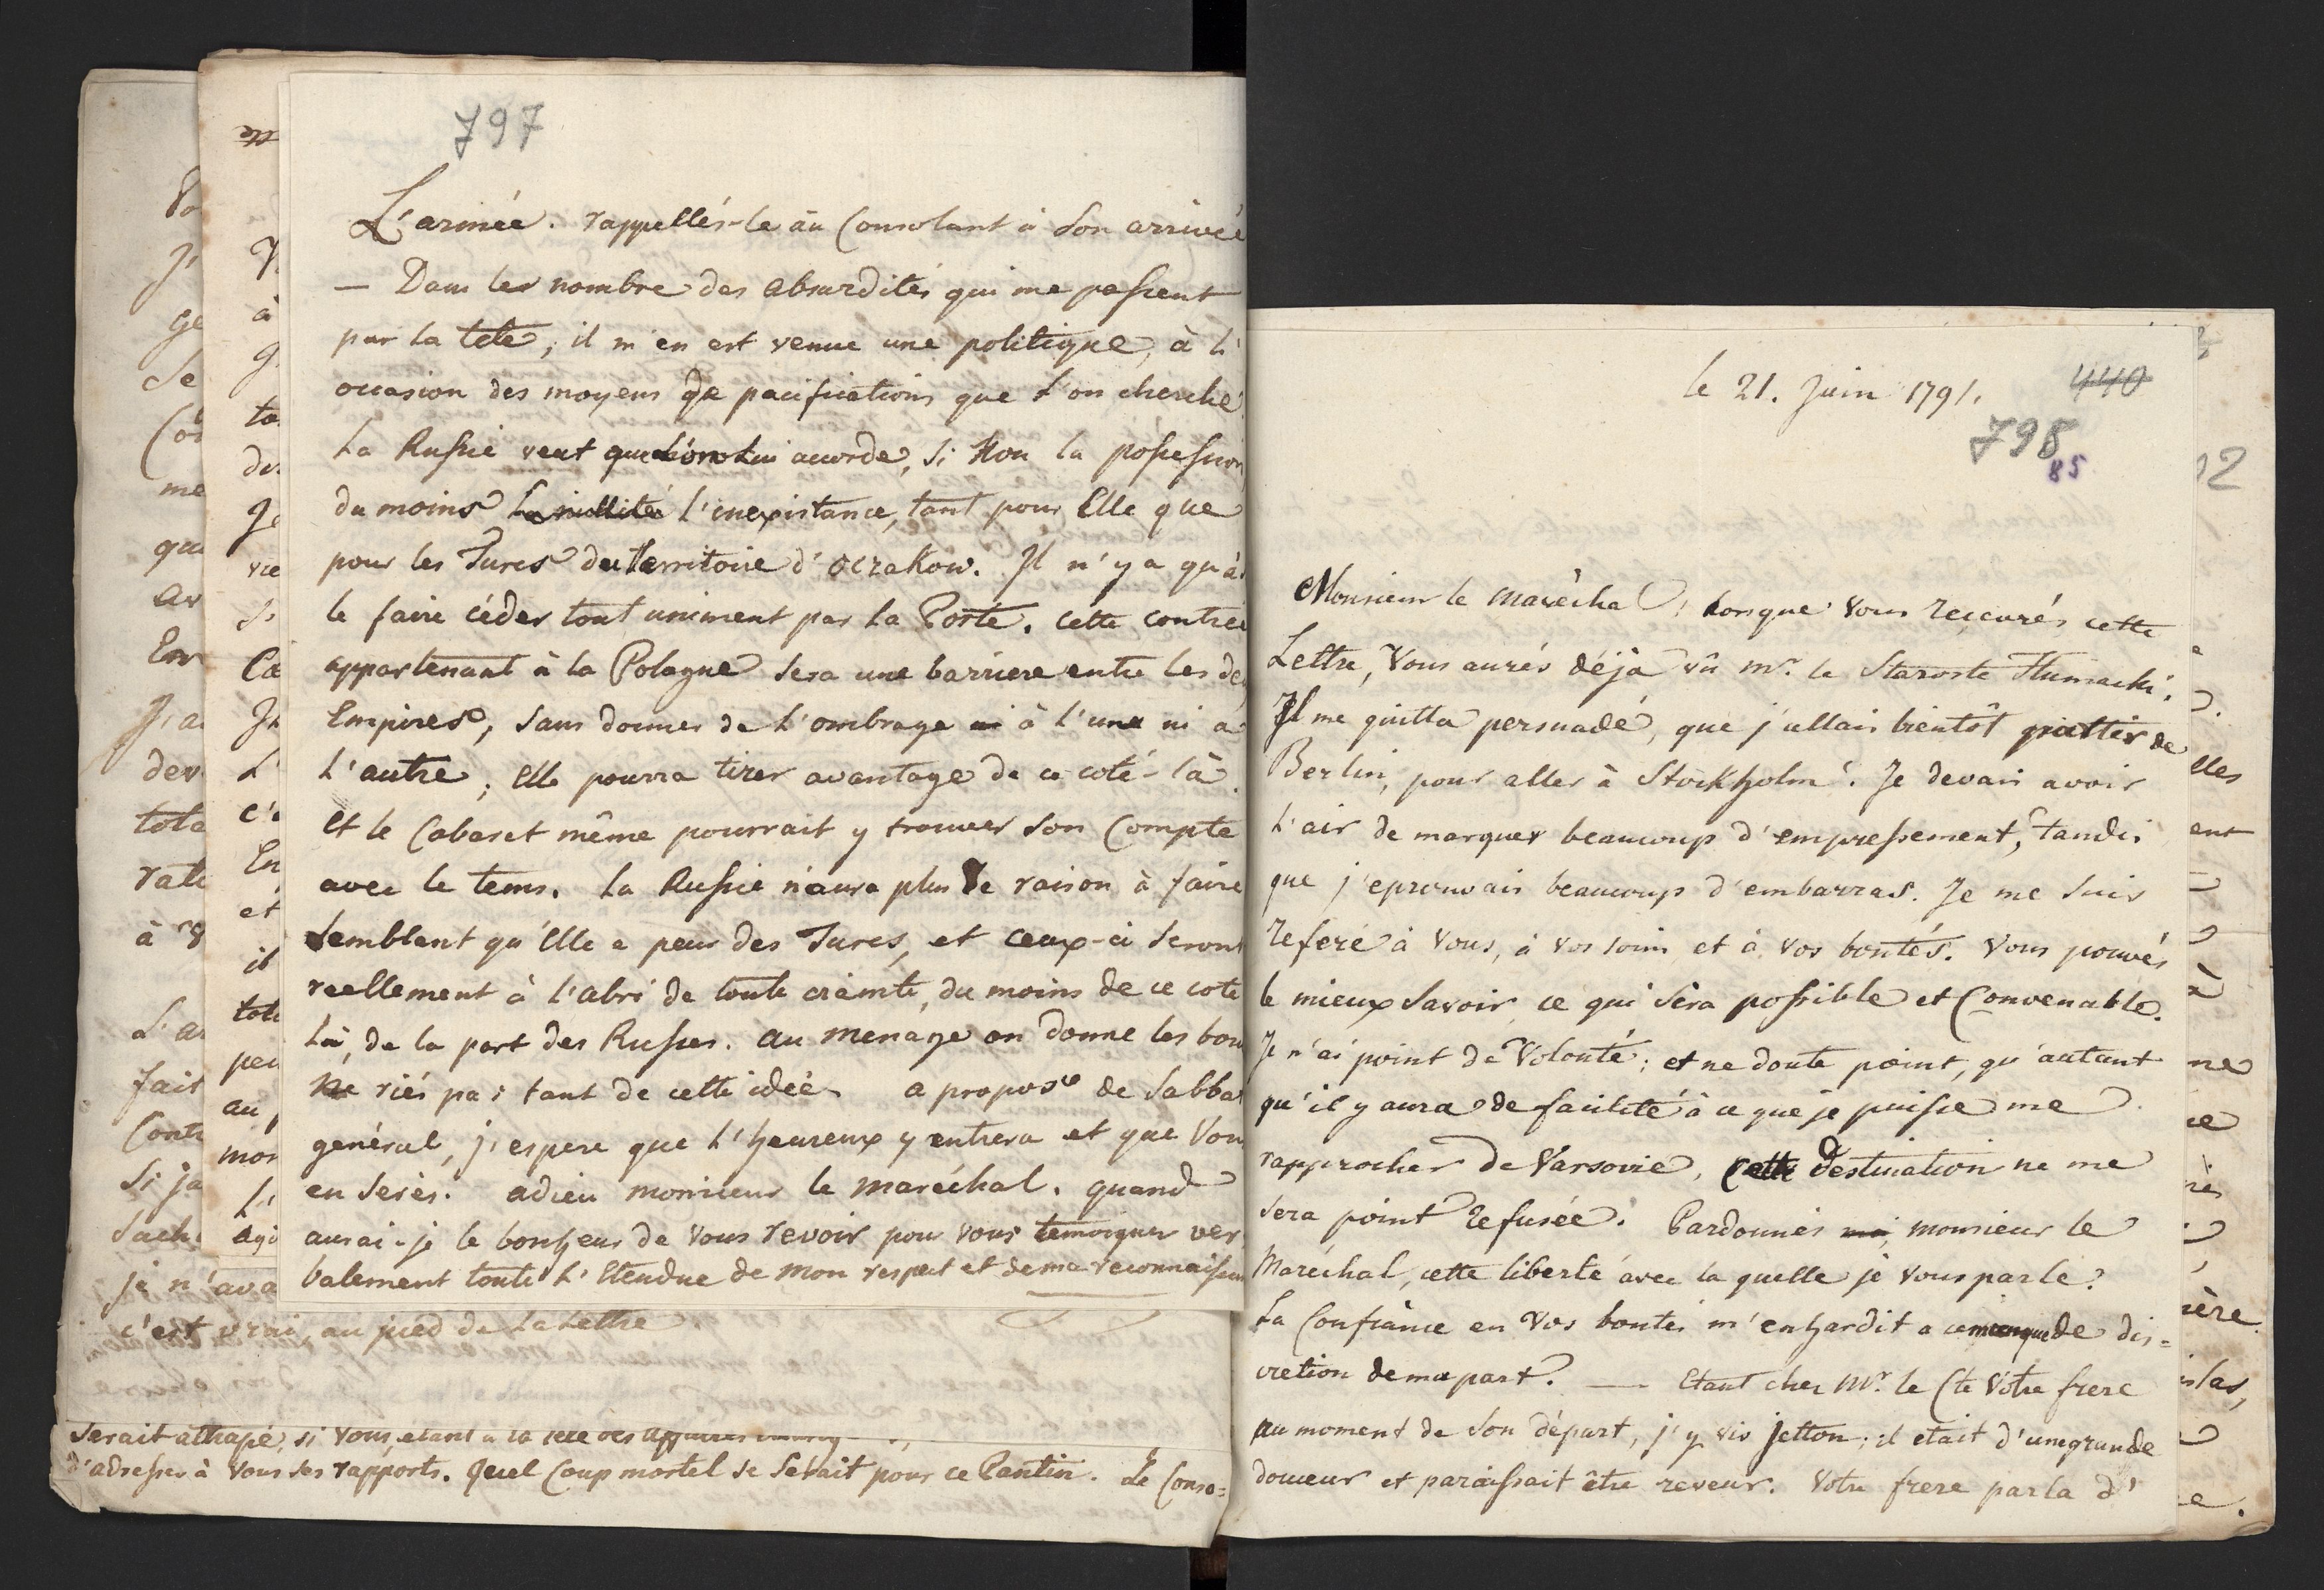 797
L'armée. rappellés-le au Consolant à son arrivée
— Dans les nombre des absurdités qui me passent
par la tete, il m'en est venue une politique, à l'
occasion des moyens de pacifications que l'on cherche
La Russie veut que l'on lui accorde, si non la possession
du moins la nullité l'inexistance, tant pour Elle que
pour les Turcs du Territoire d'Oczakow. Il n'y a qu'à
le faire céder tout uniment par la Porte. cette contrée
appartenant à la Pologne sera une barriere entre les de
Empires, sans donner de l'ombrage ni à l'une ni a
l'autre; Elle pourra tirer avantage de ce coté-là.
Et le Cabaret même pourrait y trouver son Compte
avec le tems. La Russie n'aura plus de raison à faire
semblent qu'Elle a peur des Turcs, et ceux-ci seront
reellement à l'abri de toute crainte, du moins de ce coté
là, de la part des Russes. au menage on donne les bon
Ne riés pas tant de cette idée. a propos de Sabbat
genéral, j'espere que l'heureux y entrera et que Vou
en serés. adieu monsieur le maréchal. quand
aurai-je le bonheur de vous revoir pour vous temoigner ver
balement toute l'Etendue de mon respect et de ma reconnaissan
c'est vrai, au pied de la Lettre.
serait attrapé, si vous, etant à la tete des affaires
d'adresser à vous ses rapports. quel Coup mortel se serait pour ce Pantin. Le Conso=
le 21. Juin 1791.
440
798
85
Monsieur le maréchal, Lorsque vous recevrés cette
Lettre, Vous aurés déja vû mr. le Staroste Tlumacki.
Il me quitta persuadé, que j'allais bientôt quitter de
Berlin, pour aller à Stockholm. Je devais avoir
l'air de marquer beaucoup d'empressement, tandis
que j'eprouvais beaucoup d'embarras. Je me suis
referé à vous, à vos soins et à vos bontés. Vous pouvés
le mieux savoir ce qui sera possible et Convenable.
Je n'ai point de Volonté; et ne doute point, qu'autant
qu'il y aura de facilité à ce que je puisse me
rapprocher de Varsovie, cette Destination ne me
sera point refusée. Pardonnés moi, monsieur le
Maréchal, cette liberté avec la quelle je vous parle?
La Confiance en Vos bontés m'enhardit a ce manque de dis=
cretion de ma part. — Etant chez Mr. le Cte Votre frere
au moment de son départ, j'y vis Jetton; il etait d'une grande
douceur et paraissait être reveur. Votre frere parla d'